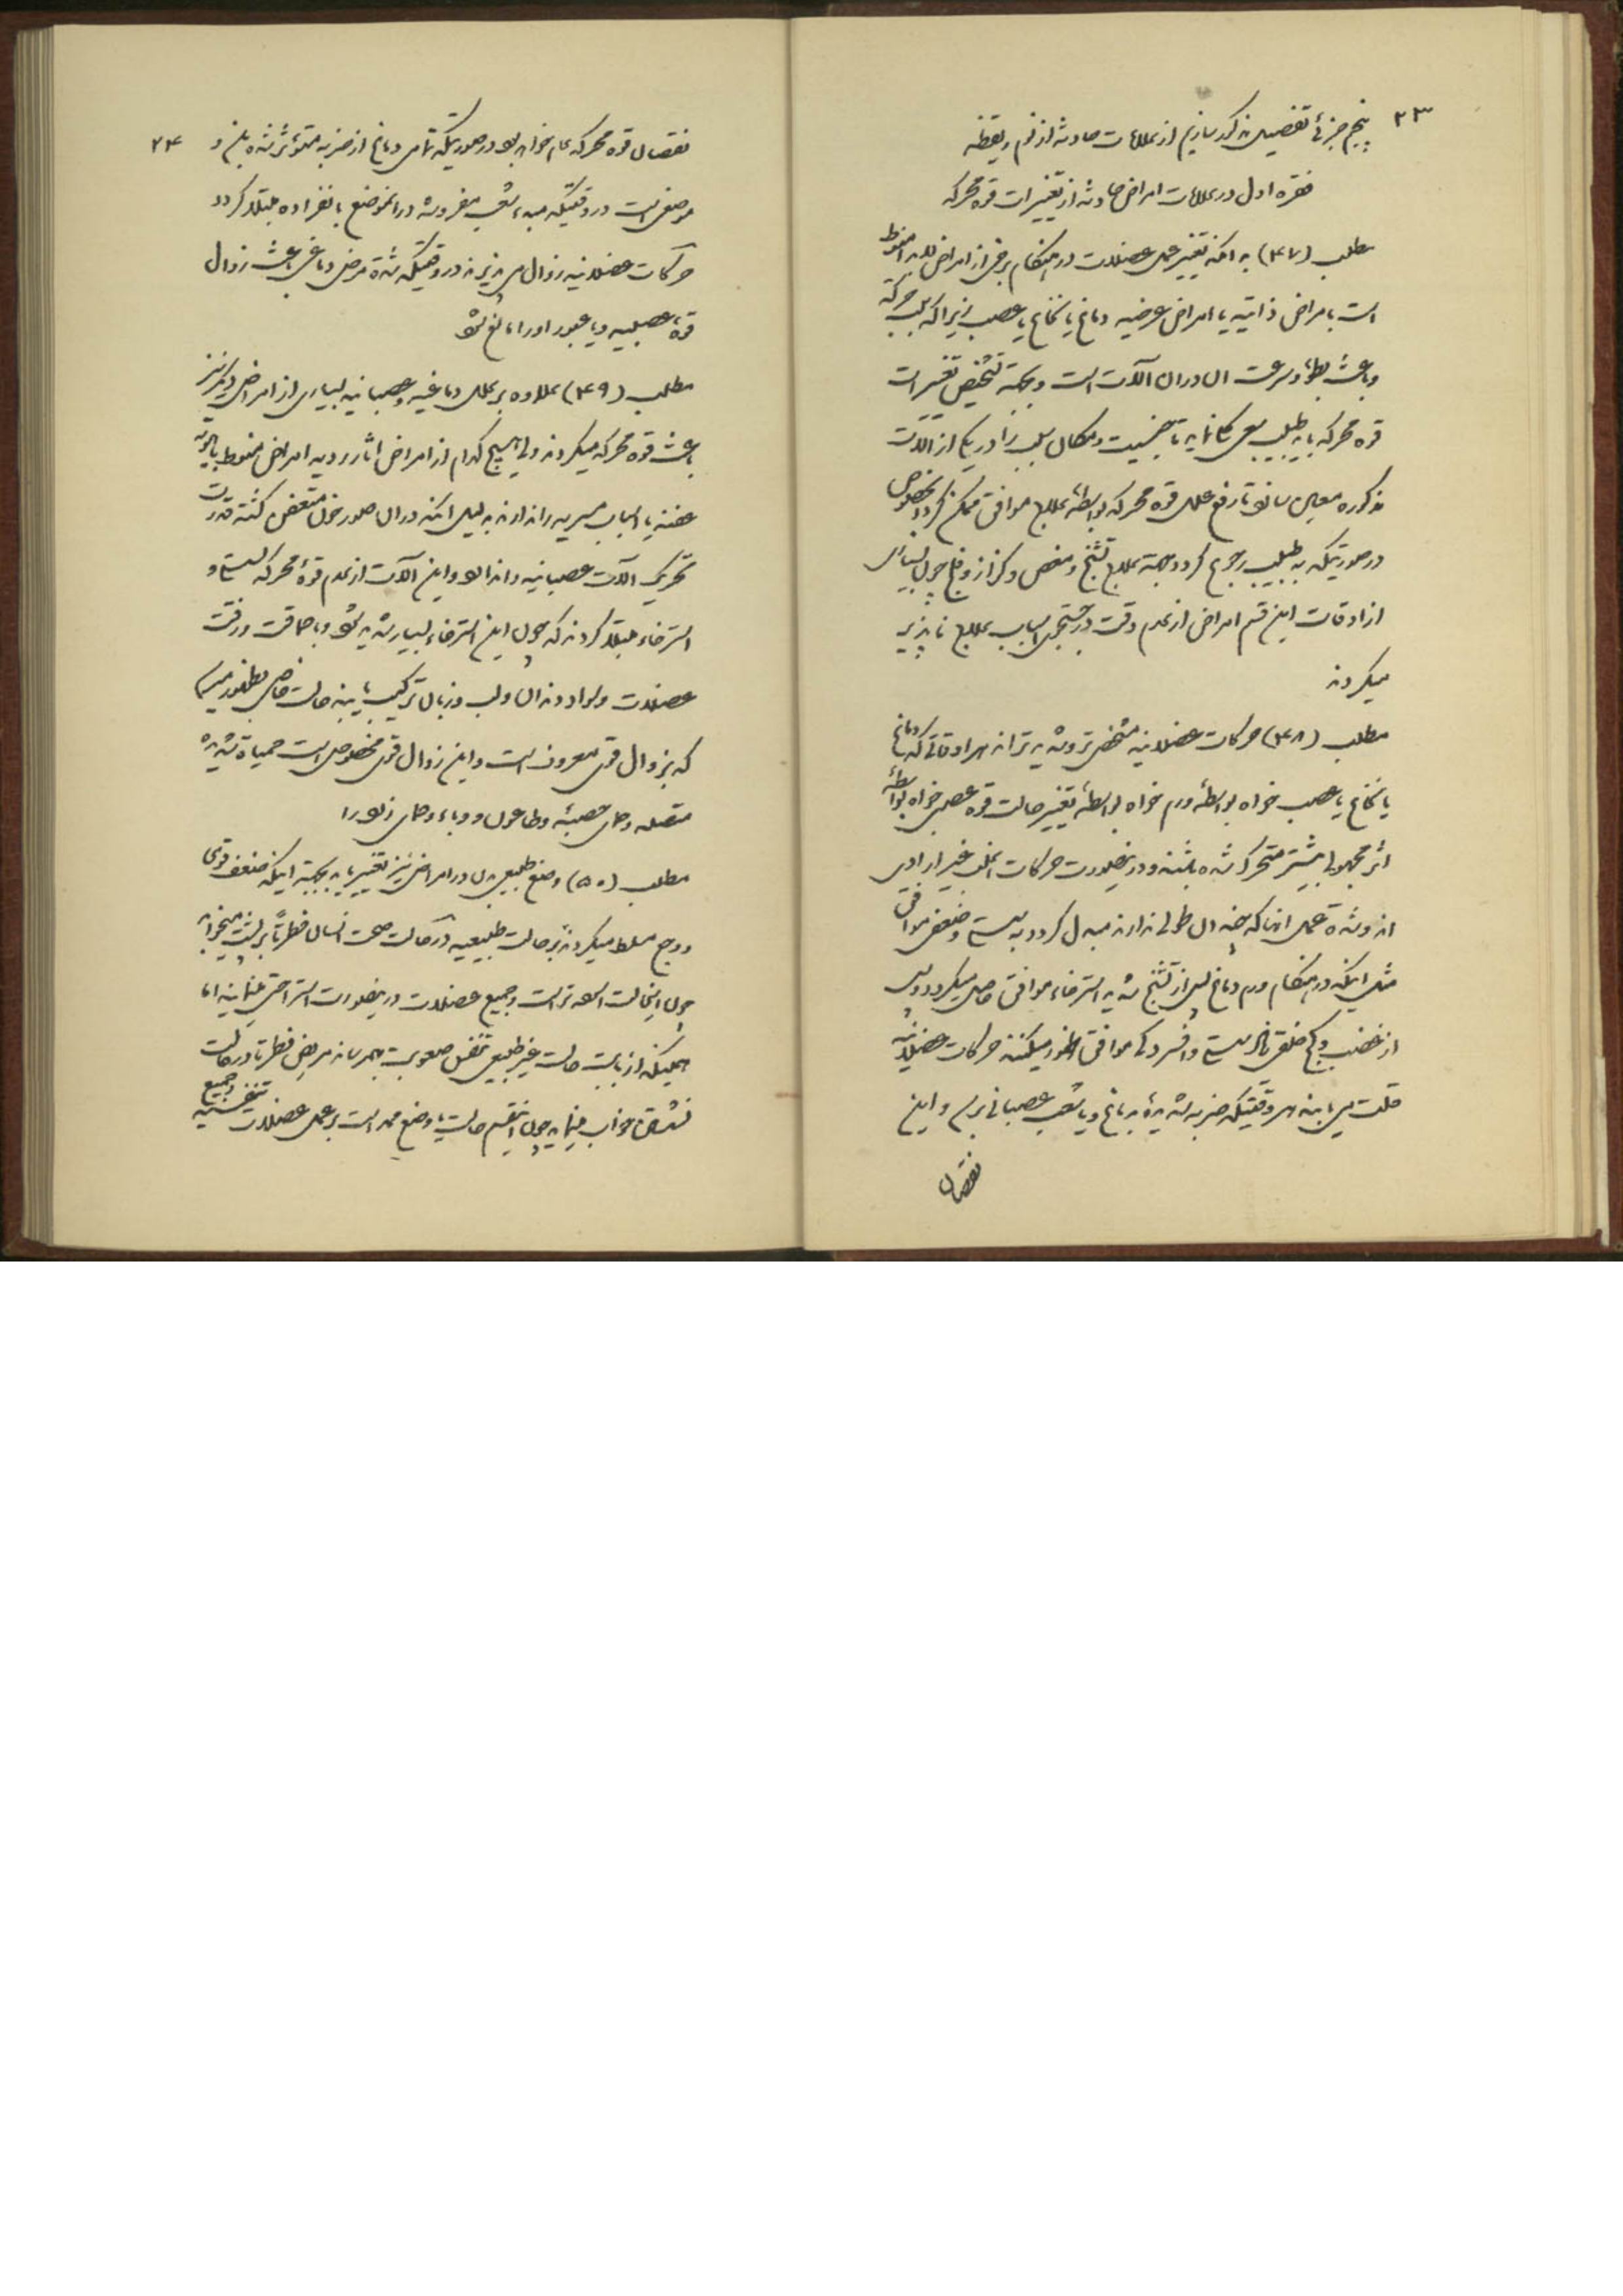 ۲۳
پنجم جزئی تفصیل مذکور سازیم از علامات حادثه از نوم و یقظه
فقره اول در علامات امراض حادثه از تغییرات قوه محرکه
مطلب (۴۷) بدانکه تغییر عمل عضلات در هنگام برخی از امراض لابد منوط
است بامراض ذاتیه یا امراض عرضیه دماغ یا نخاع یا عصب زیرا که سبب حرکة
و باعث بطؤ و سرعت ان دران آلات است و بجهة تشخیص تغییرات
قوه محرکه باید طبیب سعی نماید تا جنسیت و مکان سبب را در یکی از آلات
مذکوره معین سازد تا رفع علل قوه محرکه بواسطهٔ علاج موافق ممکن گردد بخصوص
در صورتیکه به طبیب رجوع گردد جهة علاج تشنج و مغص و کزاز و فلج چون بسیاری
از اوقات این قسم امراض از عدم دقت در جستجوی اسباب علاج ناپذیر
میگردند
مطلب (۴۸) حرکات عضلانیه مشخص تر و شدید ترانه هر اوقاتی که دماغ
یا نخاع یا عصب خواه بواسطهٔ ورم خواه بواسطهٔ تغییر حالت قوه عصبی خواه بواسطهٔ
اثر مجهولی بیشتر متحرک شده باشند و درینصورت حرکات اغلب غیر ارادی
اند و شدة عمل انها که چندان طولی ندارند مبدل گردد به سستی و ضعفی موافق
مثل اینکه در هنگام ورم دماغ پس از تشنج شدید استرخاء موافق حاصل میگردد و پس
از غضب و کج خلقی نیز سستی و افسردگی موافق ظهور میکنند حرکات عضلانیه
قلت می یابند هر وقتیکه ضربه شدیدهٔ به دماغ و یا شعب عصبانی برسد و این
نقصان
۲۴
نقصان قوه محرکه عام خواهد بود در صورتیکه تمامی دماغ از ضربه متؤثر شده باشد و
موضعی است در وقتیکه مبدء شعب مفروشه در انموضع بانفراده مبتلا گردد
حرکات عضلانیه زوال می پذیرند در وقتیکه شدة مرض دماغی باعث زوال
قوة عصبیه و یا عبور او را مانع شود
مطلب (۴۹) علاوه بر علل دماغیه و عصبانیه بسیاری از امراض دیگر نیز
باعث قوه محرکه میگردند ولی هیچ کدام از امراض اثار ردیه امراض منوط بابوئه
عفنه یا اسباب مسریه را ندارند بدلیل انکه دران صور خون متعفن گشته قدرت
تحریک الات عصبانیه را ندارد و این آلات از عدم قوهٔ محرکه بسستی و
استرخاء مبتلا گردند که چون این استرخاء بسیار شدید شود و با حماقت و رقت
عضلات و سواد دندان و لب و زبان ترکیب یابند حالت خاصی بظهور میرسد
که بزوال قوی معروف است و این زوال قوی مخصوص است حمیاة شدیده
متصله و حمای حصبه و طاعون و وباء و حمای زرد را
مطلب (۵۰) وضع طبیعی بدن در امراض نیز تغییر یابد بجهة اینکه ضعف قوی
و وجع مسلط میگردند بر حالت طبیعیه در حالت صحت انسان فطرتاً بر پشت میخوابد
چون اینحالت اسهل تر است و جمیع عضلات درینصورت استراحتی مینمایند اما
همینکه از بابت حالت غیر طبیعی تنفس صعوبت بهم رساند مریض فطرتاً در حالت
نشستن خواب مینماید چون اینقسم حالت و وضع ممد است بر عمل عضلات تنفسیه و جمیع